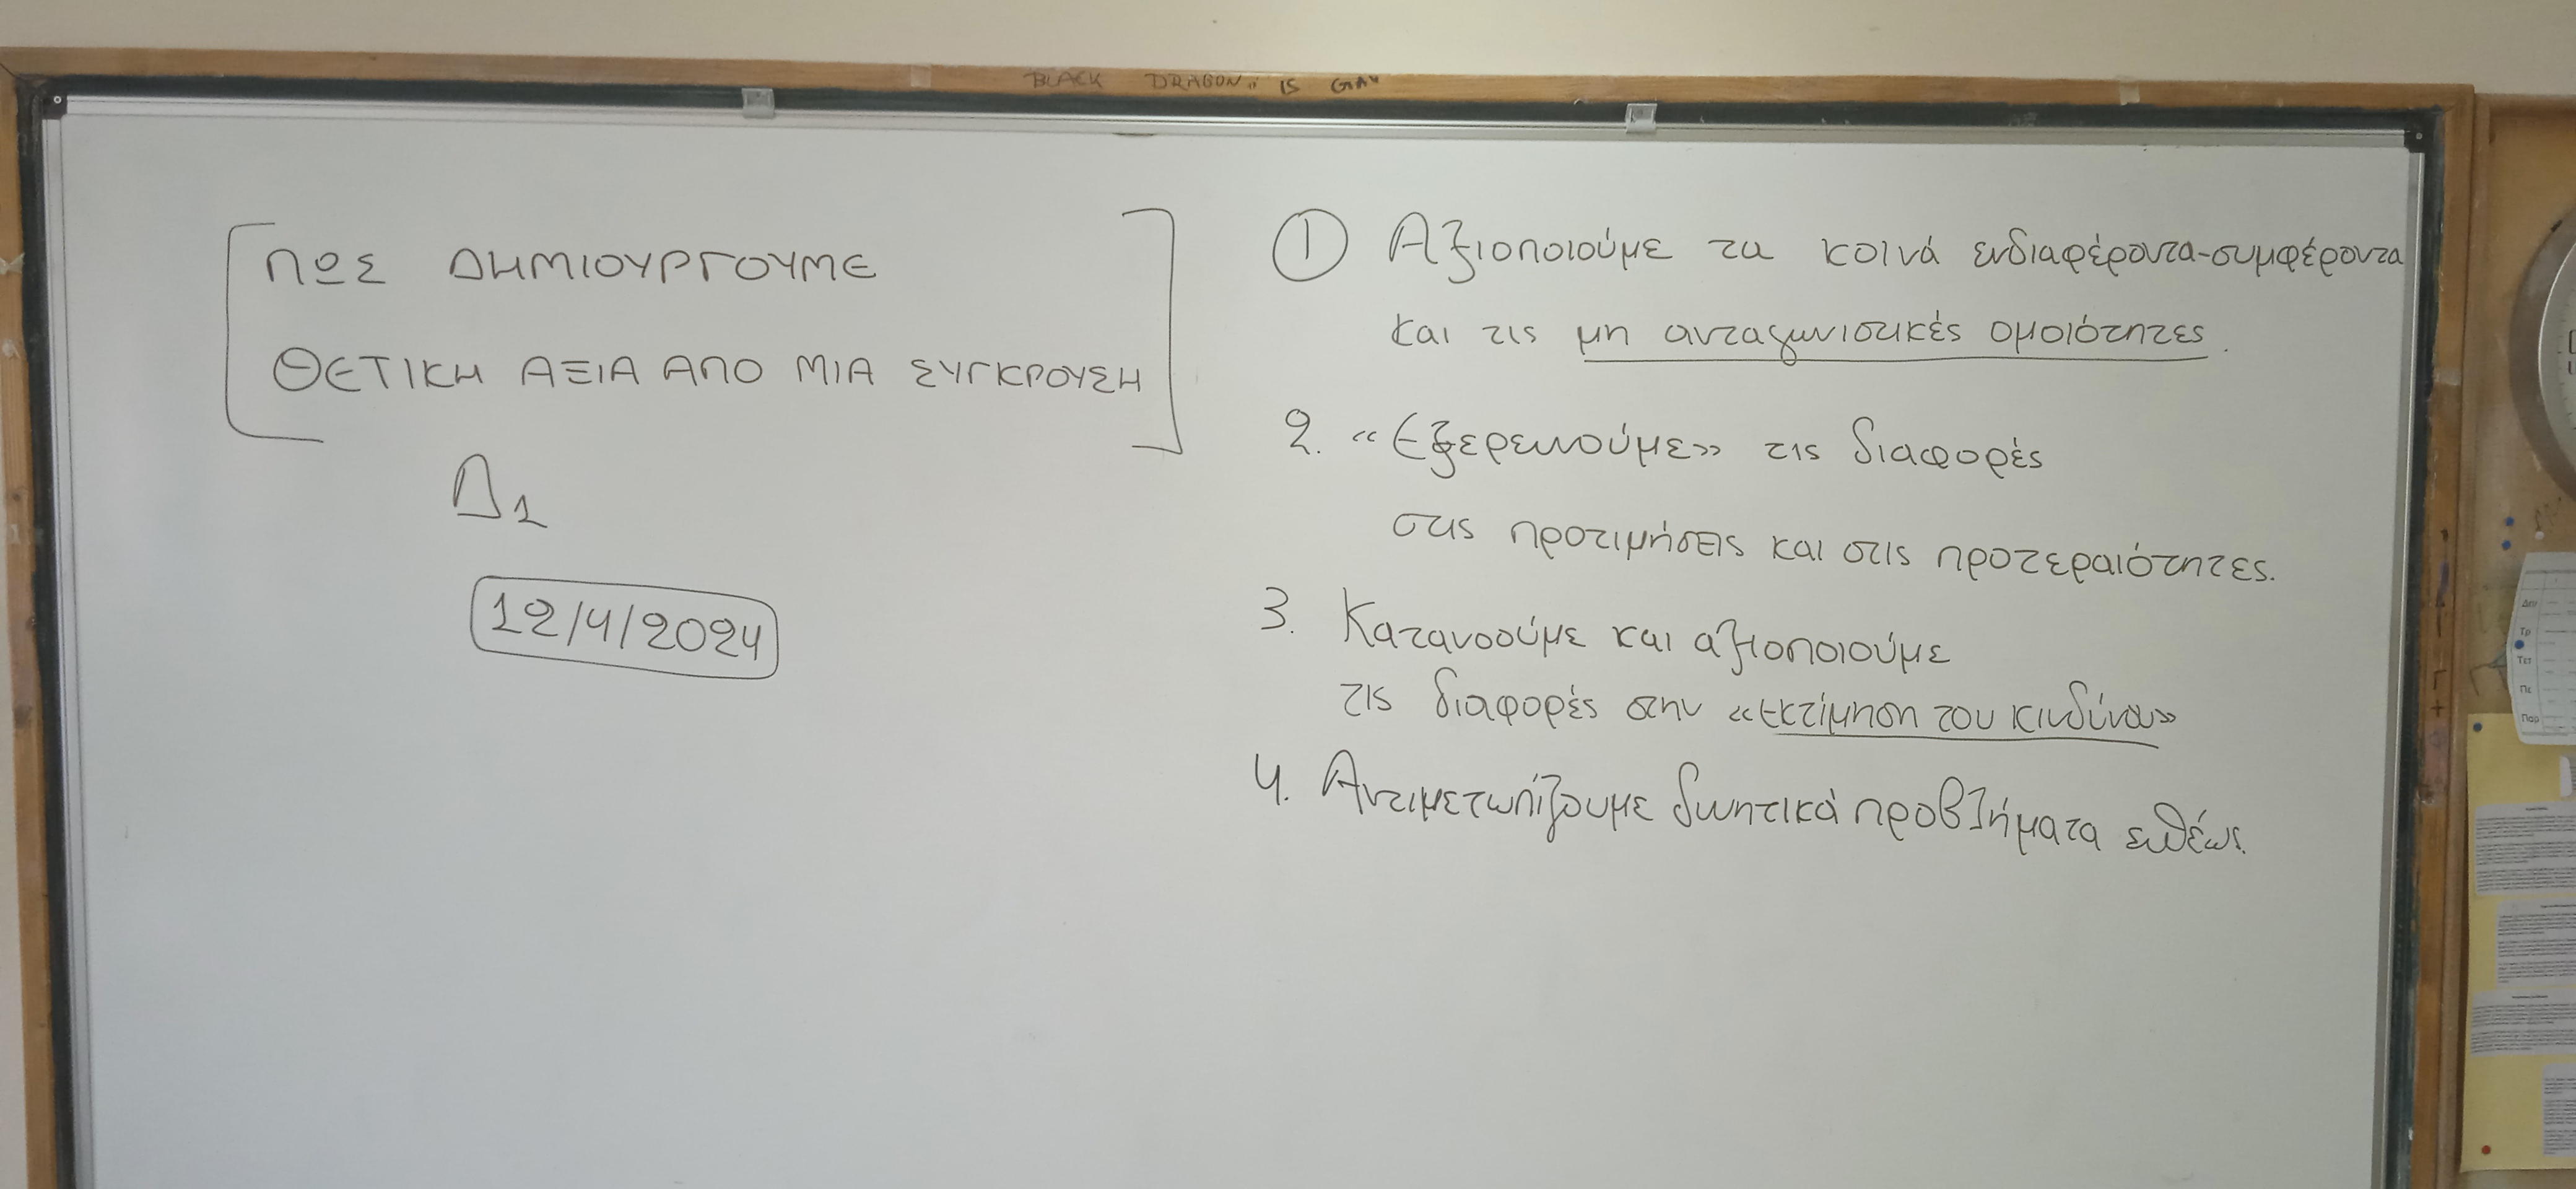 BLACK DRAGON IS GAY
ΠΩΣ ΔΗΜΙΟΥΡΓΟΥΜΕ
ΘΕΤΙΚΗ ΑΞΙΑ ΑΠΟ ΜΙΑ ΣΥΓΚΡΟΥΣΗ
Δ1
12/4/2024
1 Αξιοποιούμε τα κοινά ενδιαφέροντα-συμφέροντα
και τις μη ανταγωνιστικές ομοιότητες.
2. «Εξερευνούμε» τις διαφορές
στις προτιμήσεις και στις προτεραιότητες.
3. Κατανοούμε και αξιοποιούμε
τις διαφορές στην «εκτίμηση του κινδύνου»
4. Αντιμετωπίζουμε διοητικά προβλήματα ευθέως.
Δευ
Τρ
Τετ
Πε
Παρ